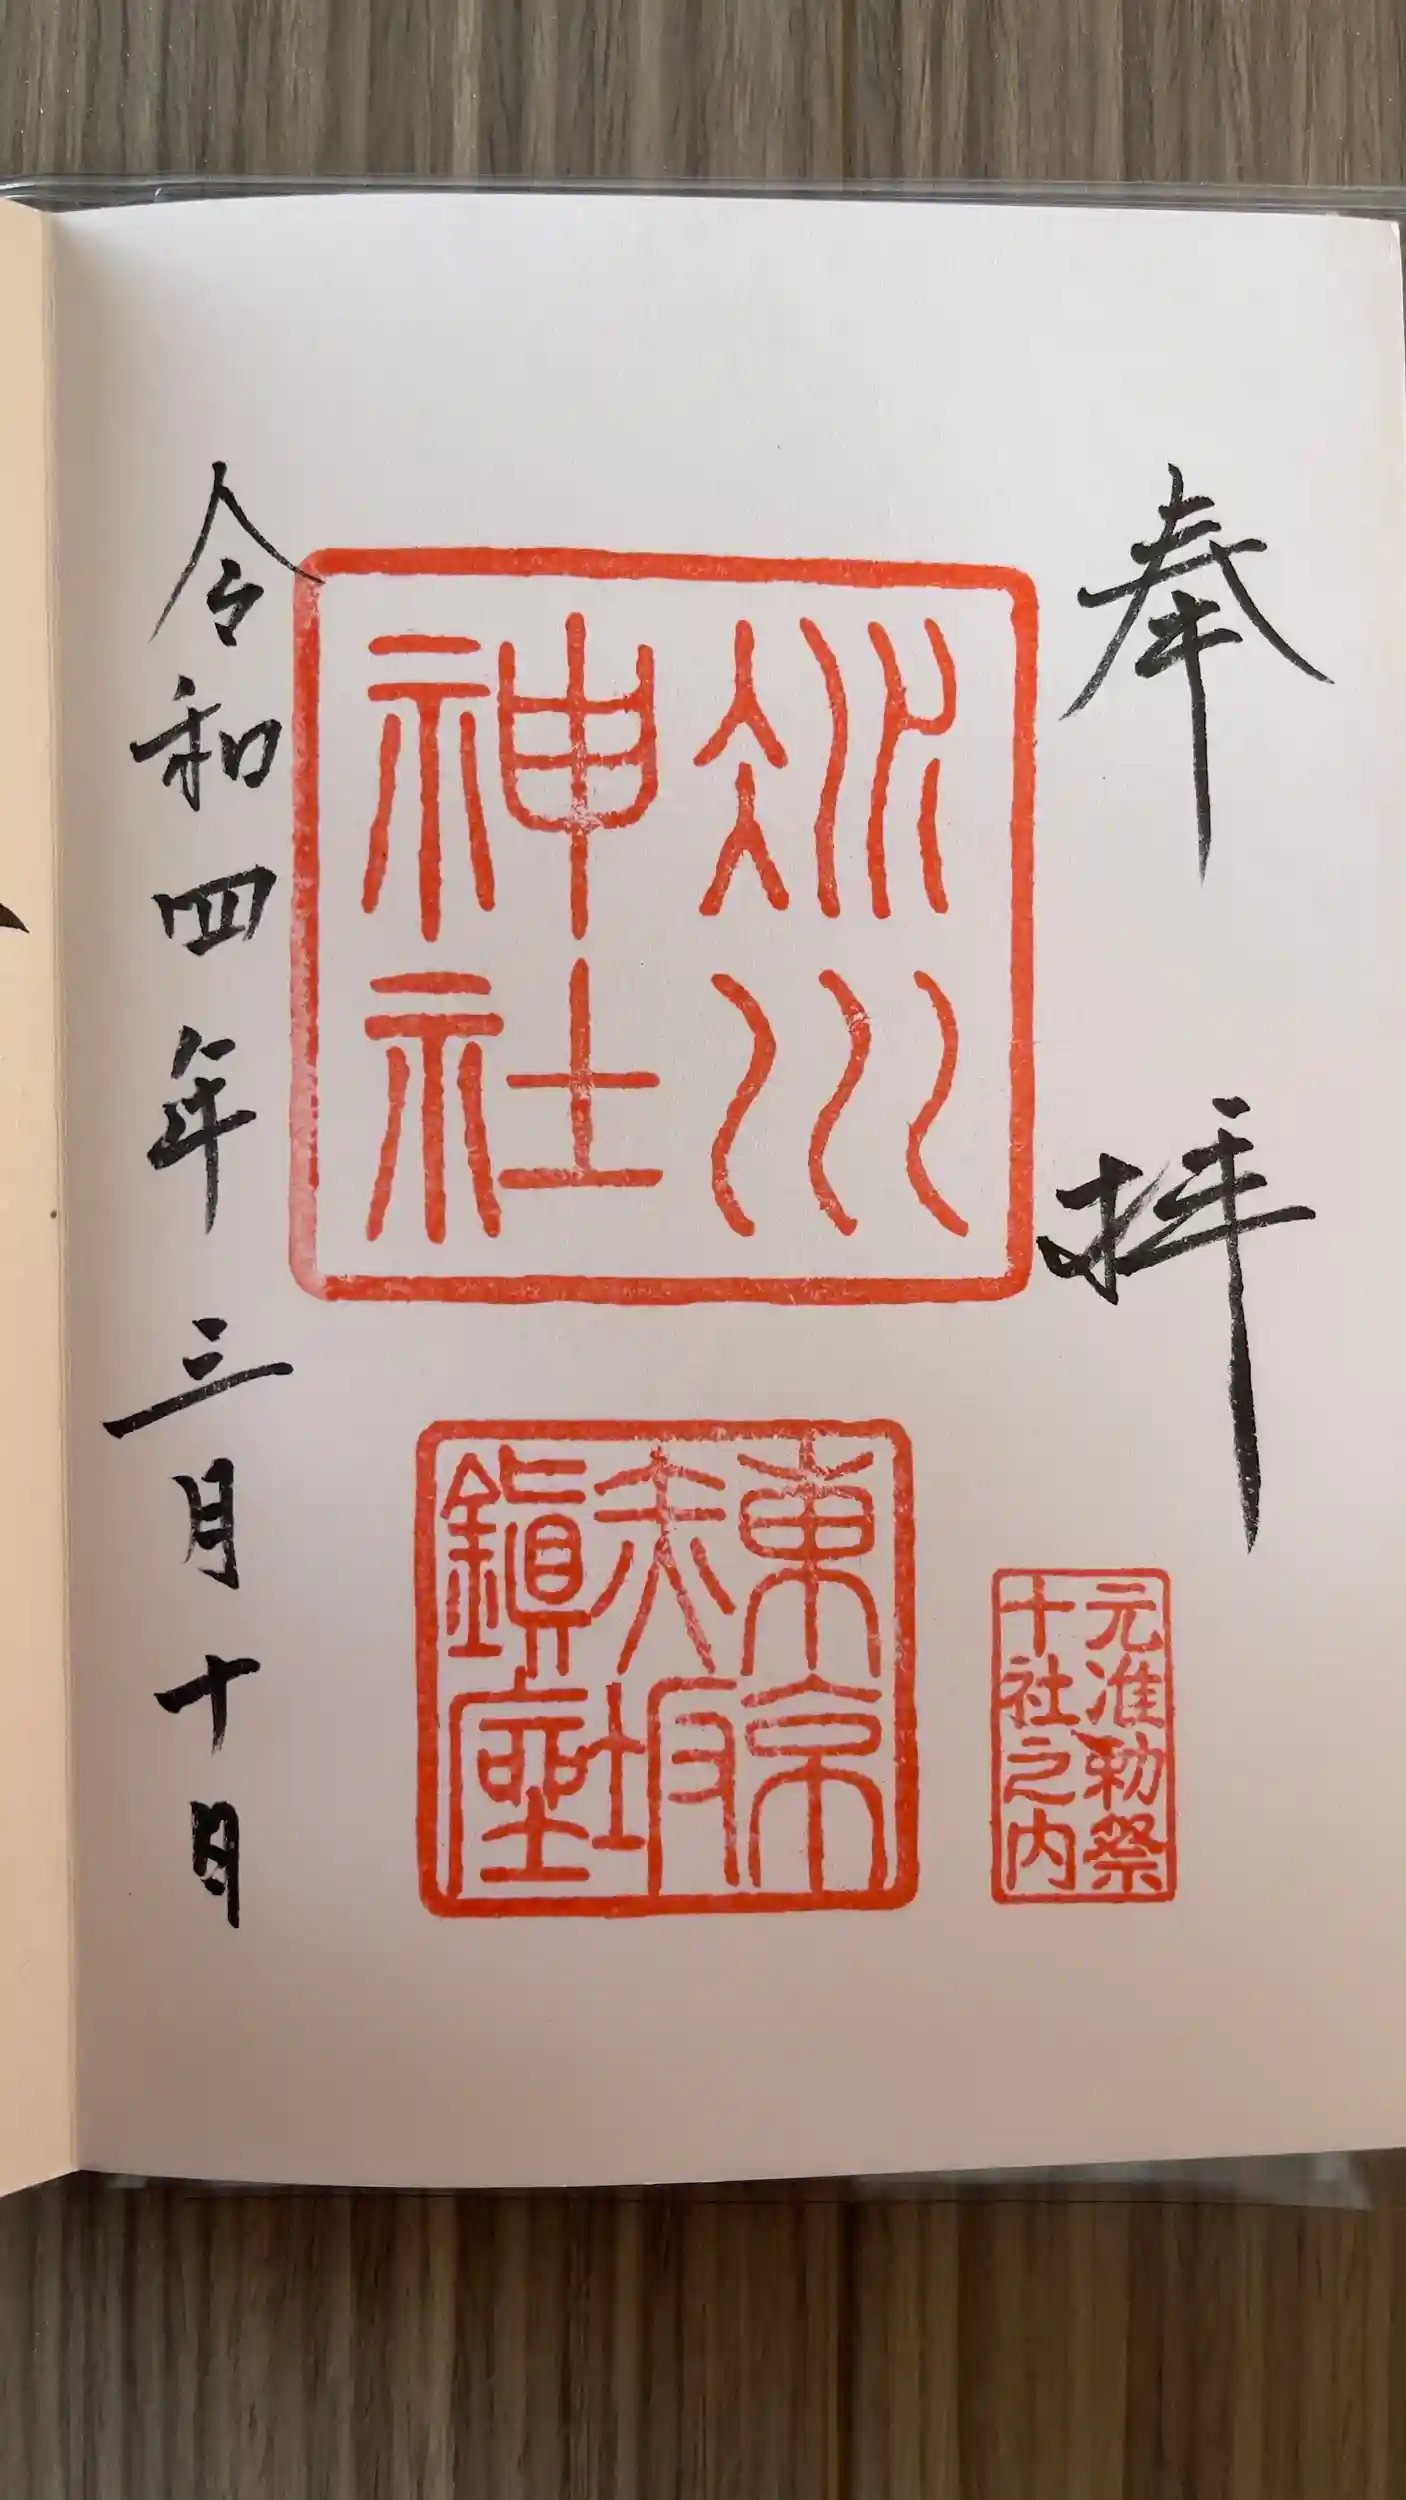 奉拝
元准勅祭
十社之内
冰川
神社
東京
赤坂
鎭座
令和四年三月十日